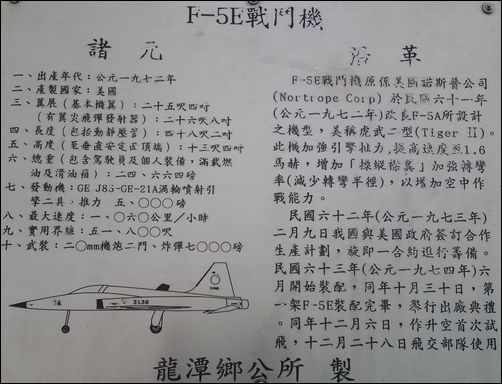 F-5E戰鬥機
諸元
一、出產年代：公元一九七二年
二、產製國家：美國
三、翼展（基本機翼）：二十五呎四吋
（有翼尖飛彈發射器）：二十六呎八吋
四、長度（包括動靜壓管）：四十八呎二吋
五、高度（至垂直安定面頂端）：十三呎四吋
六、總重（包含駕駛員及個人裝備，滿載燃
油及滑油箱）：二四、六六四磅
七、發動機：GE J85-GE-21A渦輪噴射引
擎二具，推力 五、○○○磅
八、最大速度：一、○六○公里／小時
九、實用昇限：五一、八○○呎
十、武裝：二○mm機炮二門、炸彈七○○○磅
2430
沿革
F-5E戰鬥機原係美國諾斯普公司
(Nortrope Corp) 於民國六十一年
(公元一九七二年)改良F-5A所設計
之機型，美稱虎武二型(Tiger II)。
此機加強引擎推力，提高速度至1.6
馬赫，增加「操縱襟翼」加強轉彎
率(減少轉彎半徑)，以增加空中作
戰能力。
民國六十二年(公元一九七三年)
二月九日我國與美國政府簽訂合作
生產計劃，旋即一合約進行籌備。
民國六十三年(公元一九七四年)六
月開始裝配，同年十月三十日，第
一架F-5E裝配完畢，舉行出廠典禮
。同年十二月六日，作升空首次試
飛，十二月二十八日飛交部隊使用
龍潭鄉公所 製